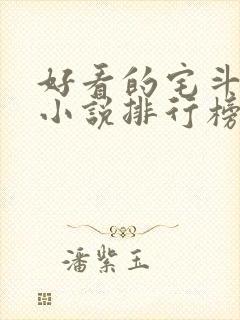 好看的宅斗
小说排行榜
潘紫玉